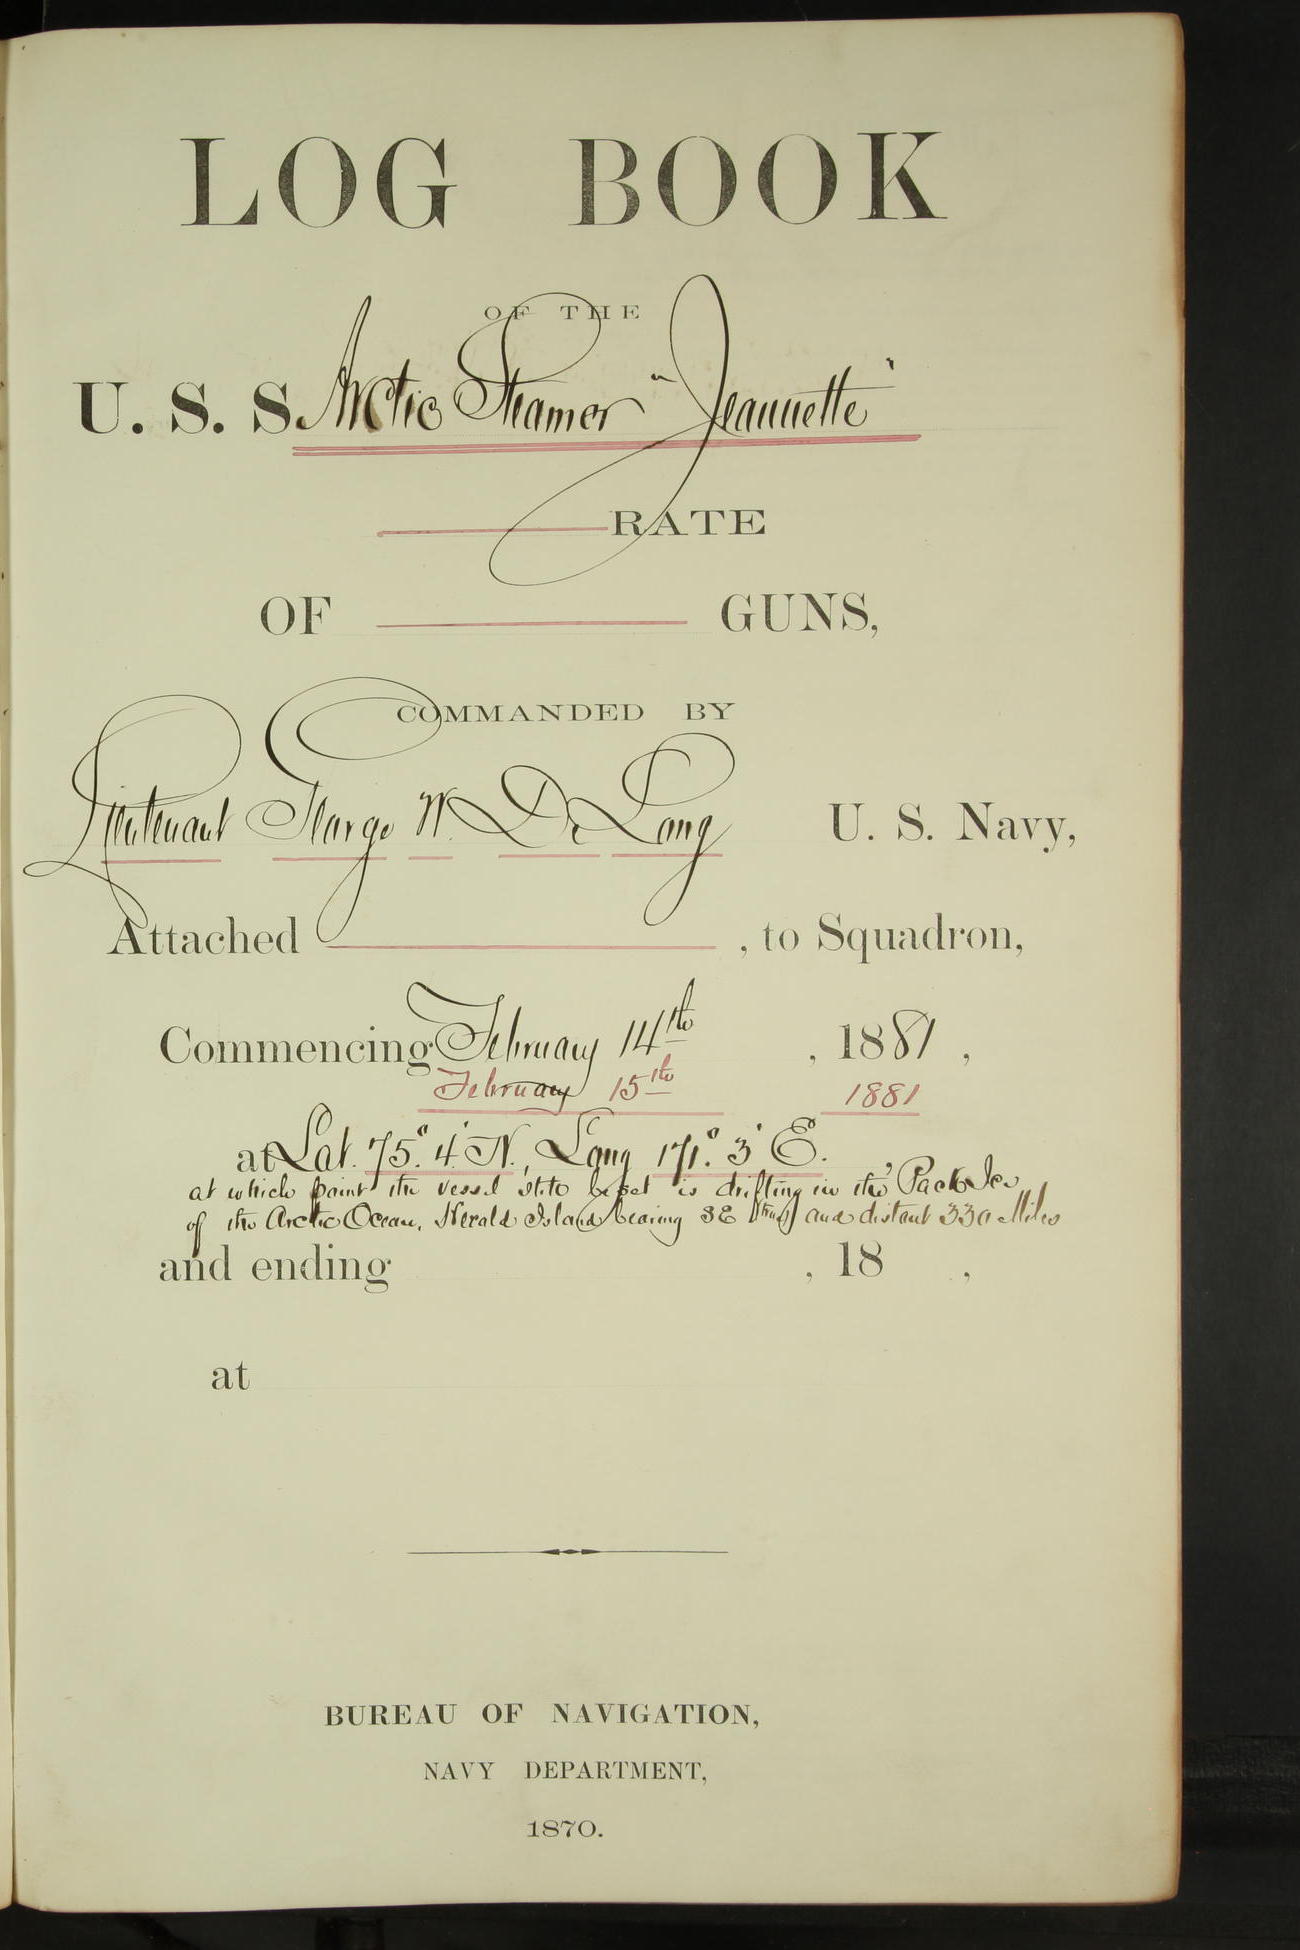 LOG BOOK
OF THE
U. S. S. Arctic Steamer "Jeannette"
RATE
OF GUNS,
COMMANDED BY
Lieutenant George W. De Long U. S. Navy,
Attached , to Squadron,
Commencing February 14th , 1881 ,
February 15th 1881
at Lat. 75° 4' N., Long 171° 3' E. ,
at which point the vessel still beset is drifting in the Pack Ice
of the Arctic Ocean, Herald Island bearing SE (true) and distant 330 Miles
and ending , 18 ,
at
BUREAU OF NAVIGATION,
NAVY DEPARTMENT,
1870.